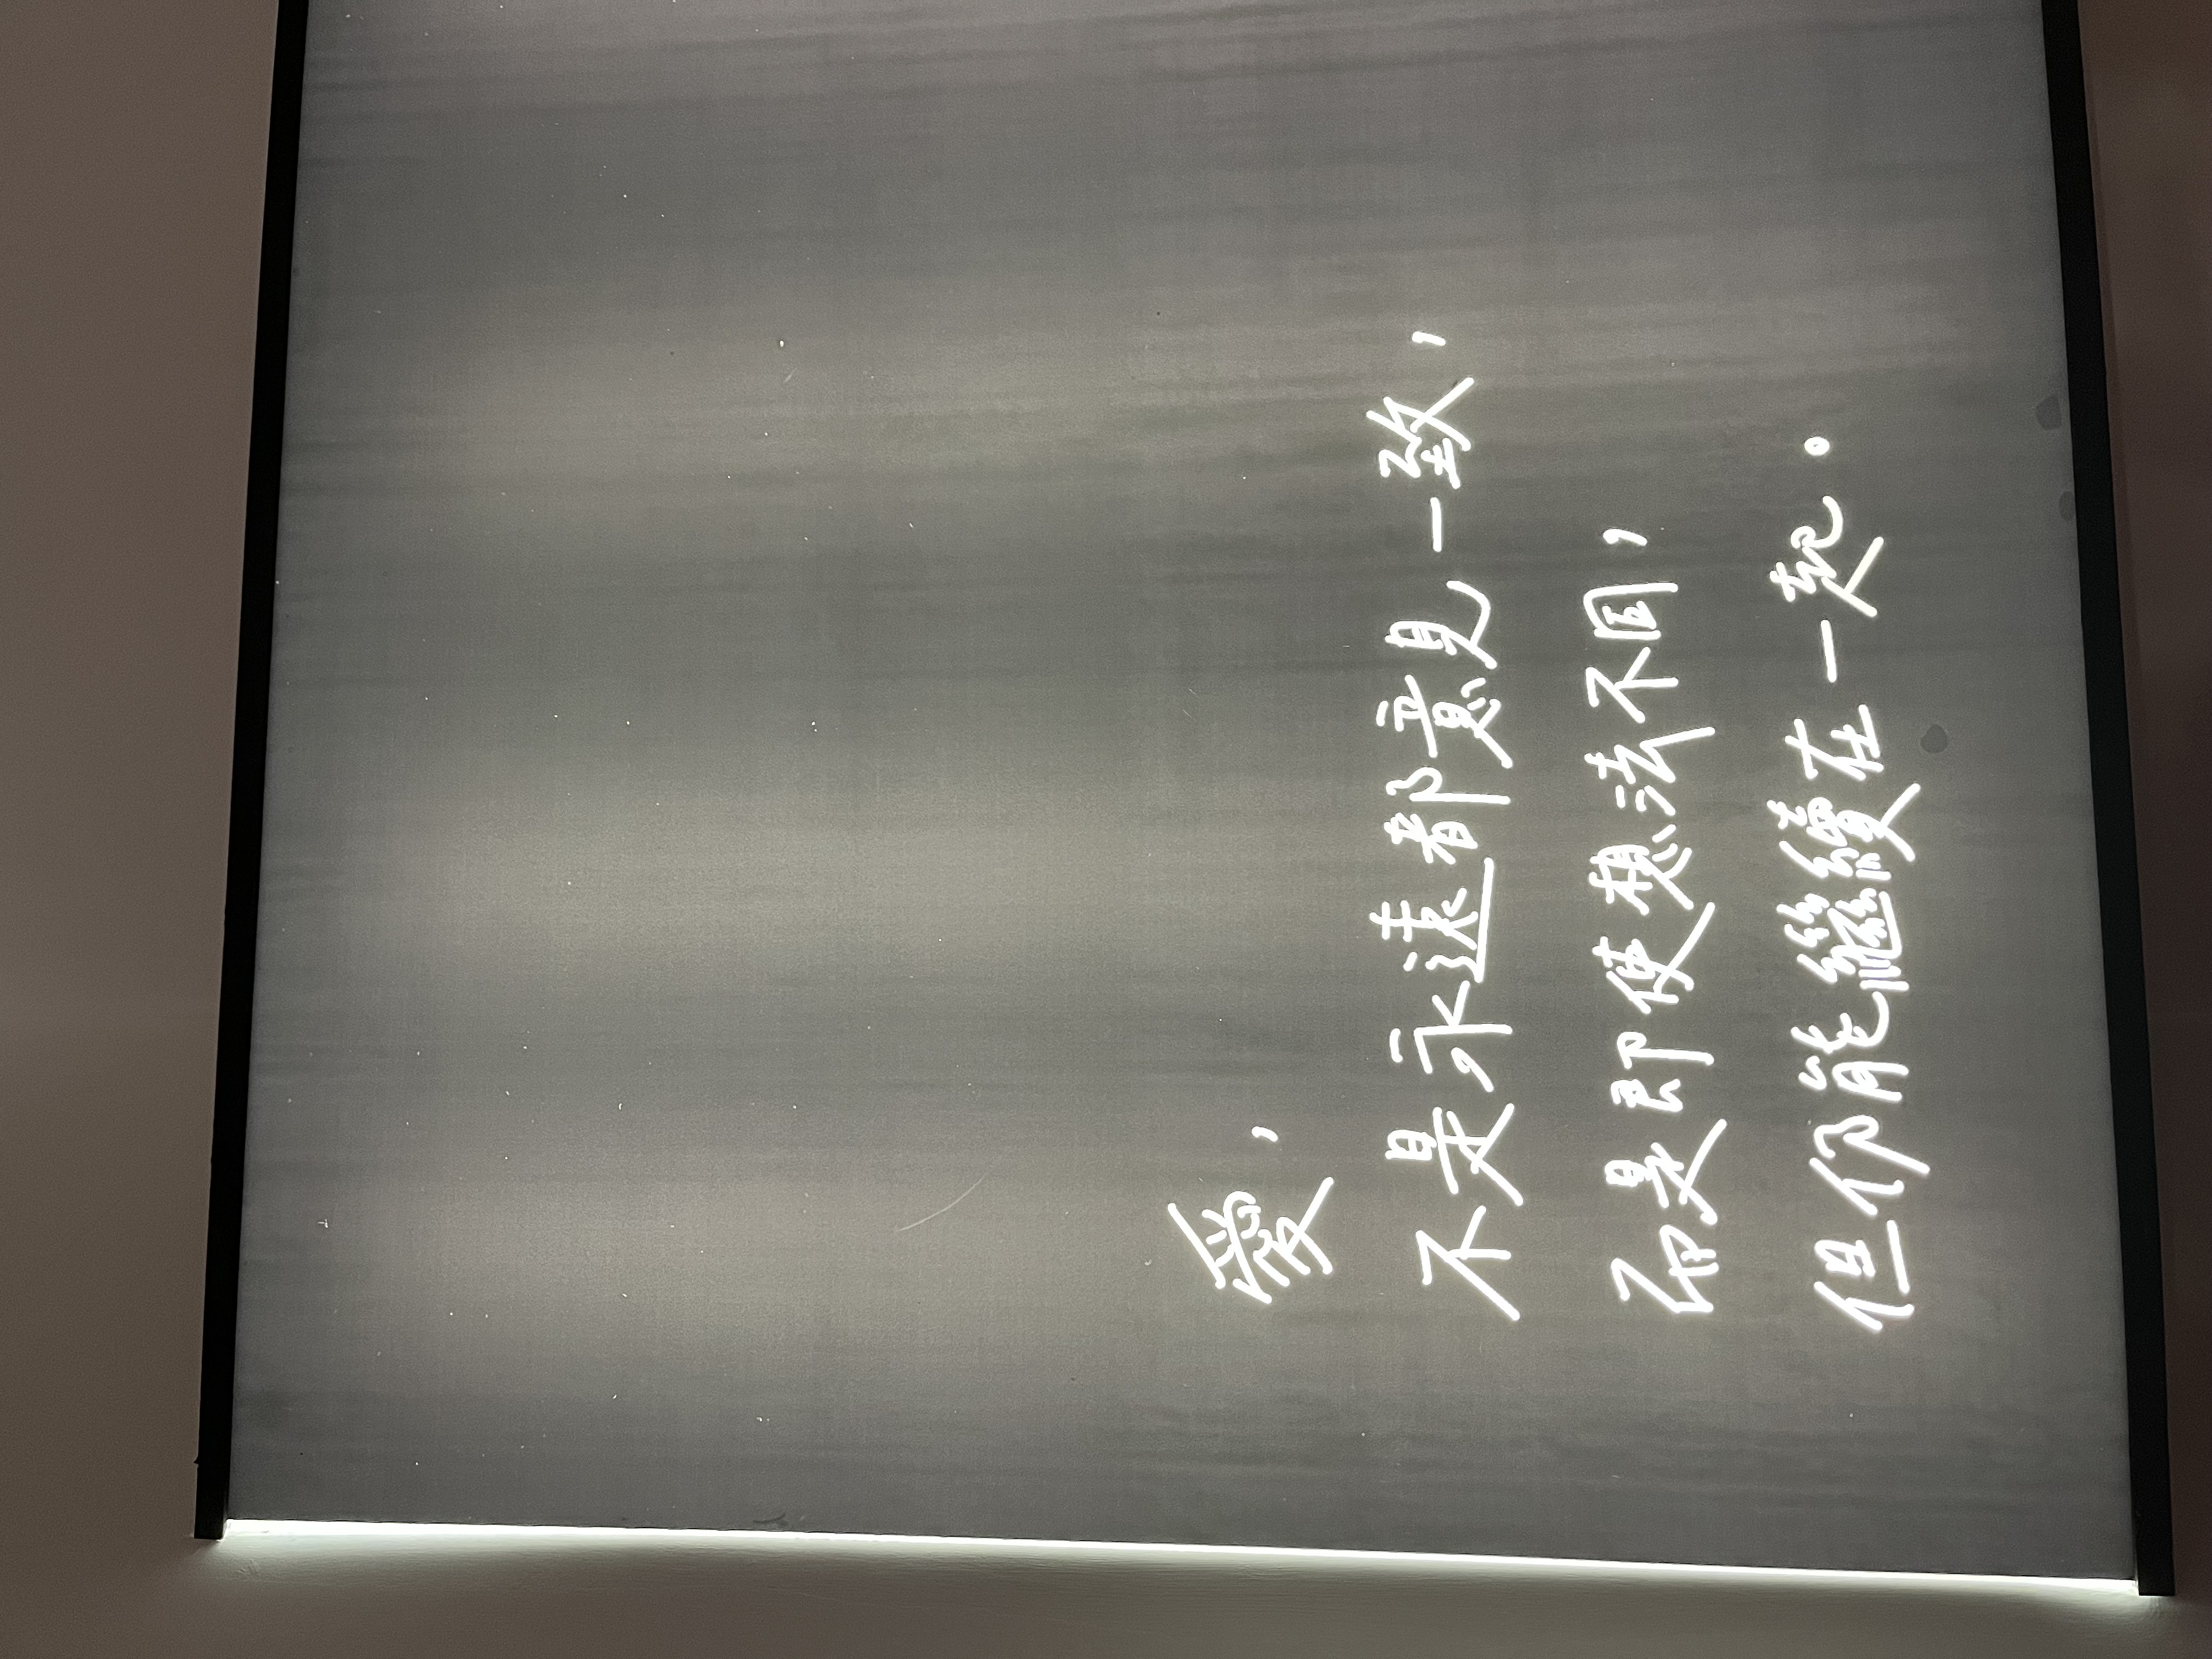 愛，
不是永遠都意見一致，
而是即使想法不同，
但仍能繼續在一起。